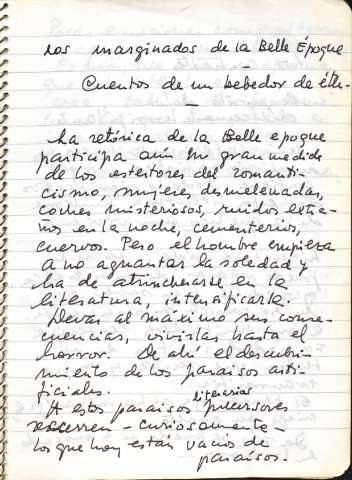 Los marginados de la Belle Époque
—
Cuentos de un bebedor de éter
—
La retórica de la Belle epoque
participa aún en gran medida
de los estertores del romanti-
cismo, mujeres desmelenadas,
coches misteriosos, ruidos extra-
ños en la noche, cementerios,
cuervos. Pero el hombre empieza
a no aguantar la soledad y
ha de atrincherarse en la
literatura, intensificarla.
Llevar al máximo sus conse-
cuencias, vivirlas hasta el
horror. De ahí el descubri-
miento de los paraisos arti-
ficiales.
A estos paraisos literarios precursores
recurren - curiosamente -
los que hoy están vacios de
paraísos.